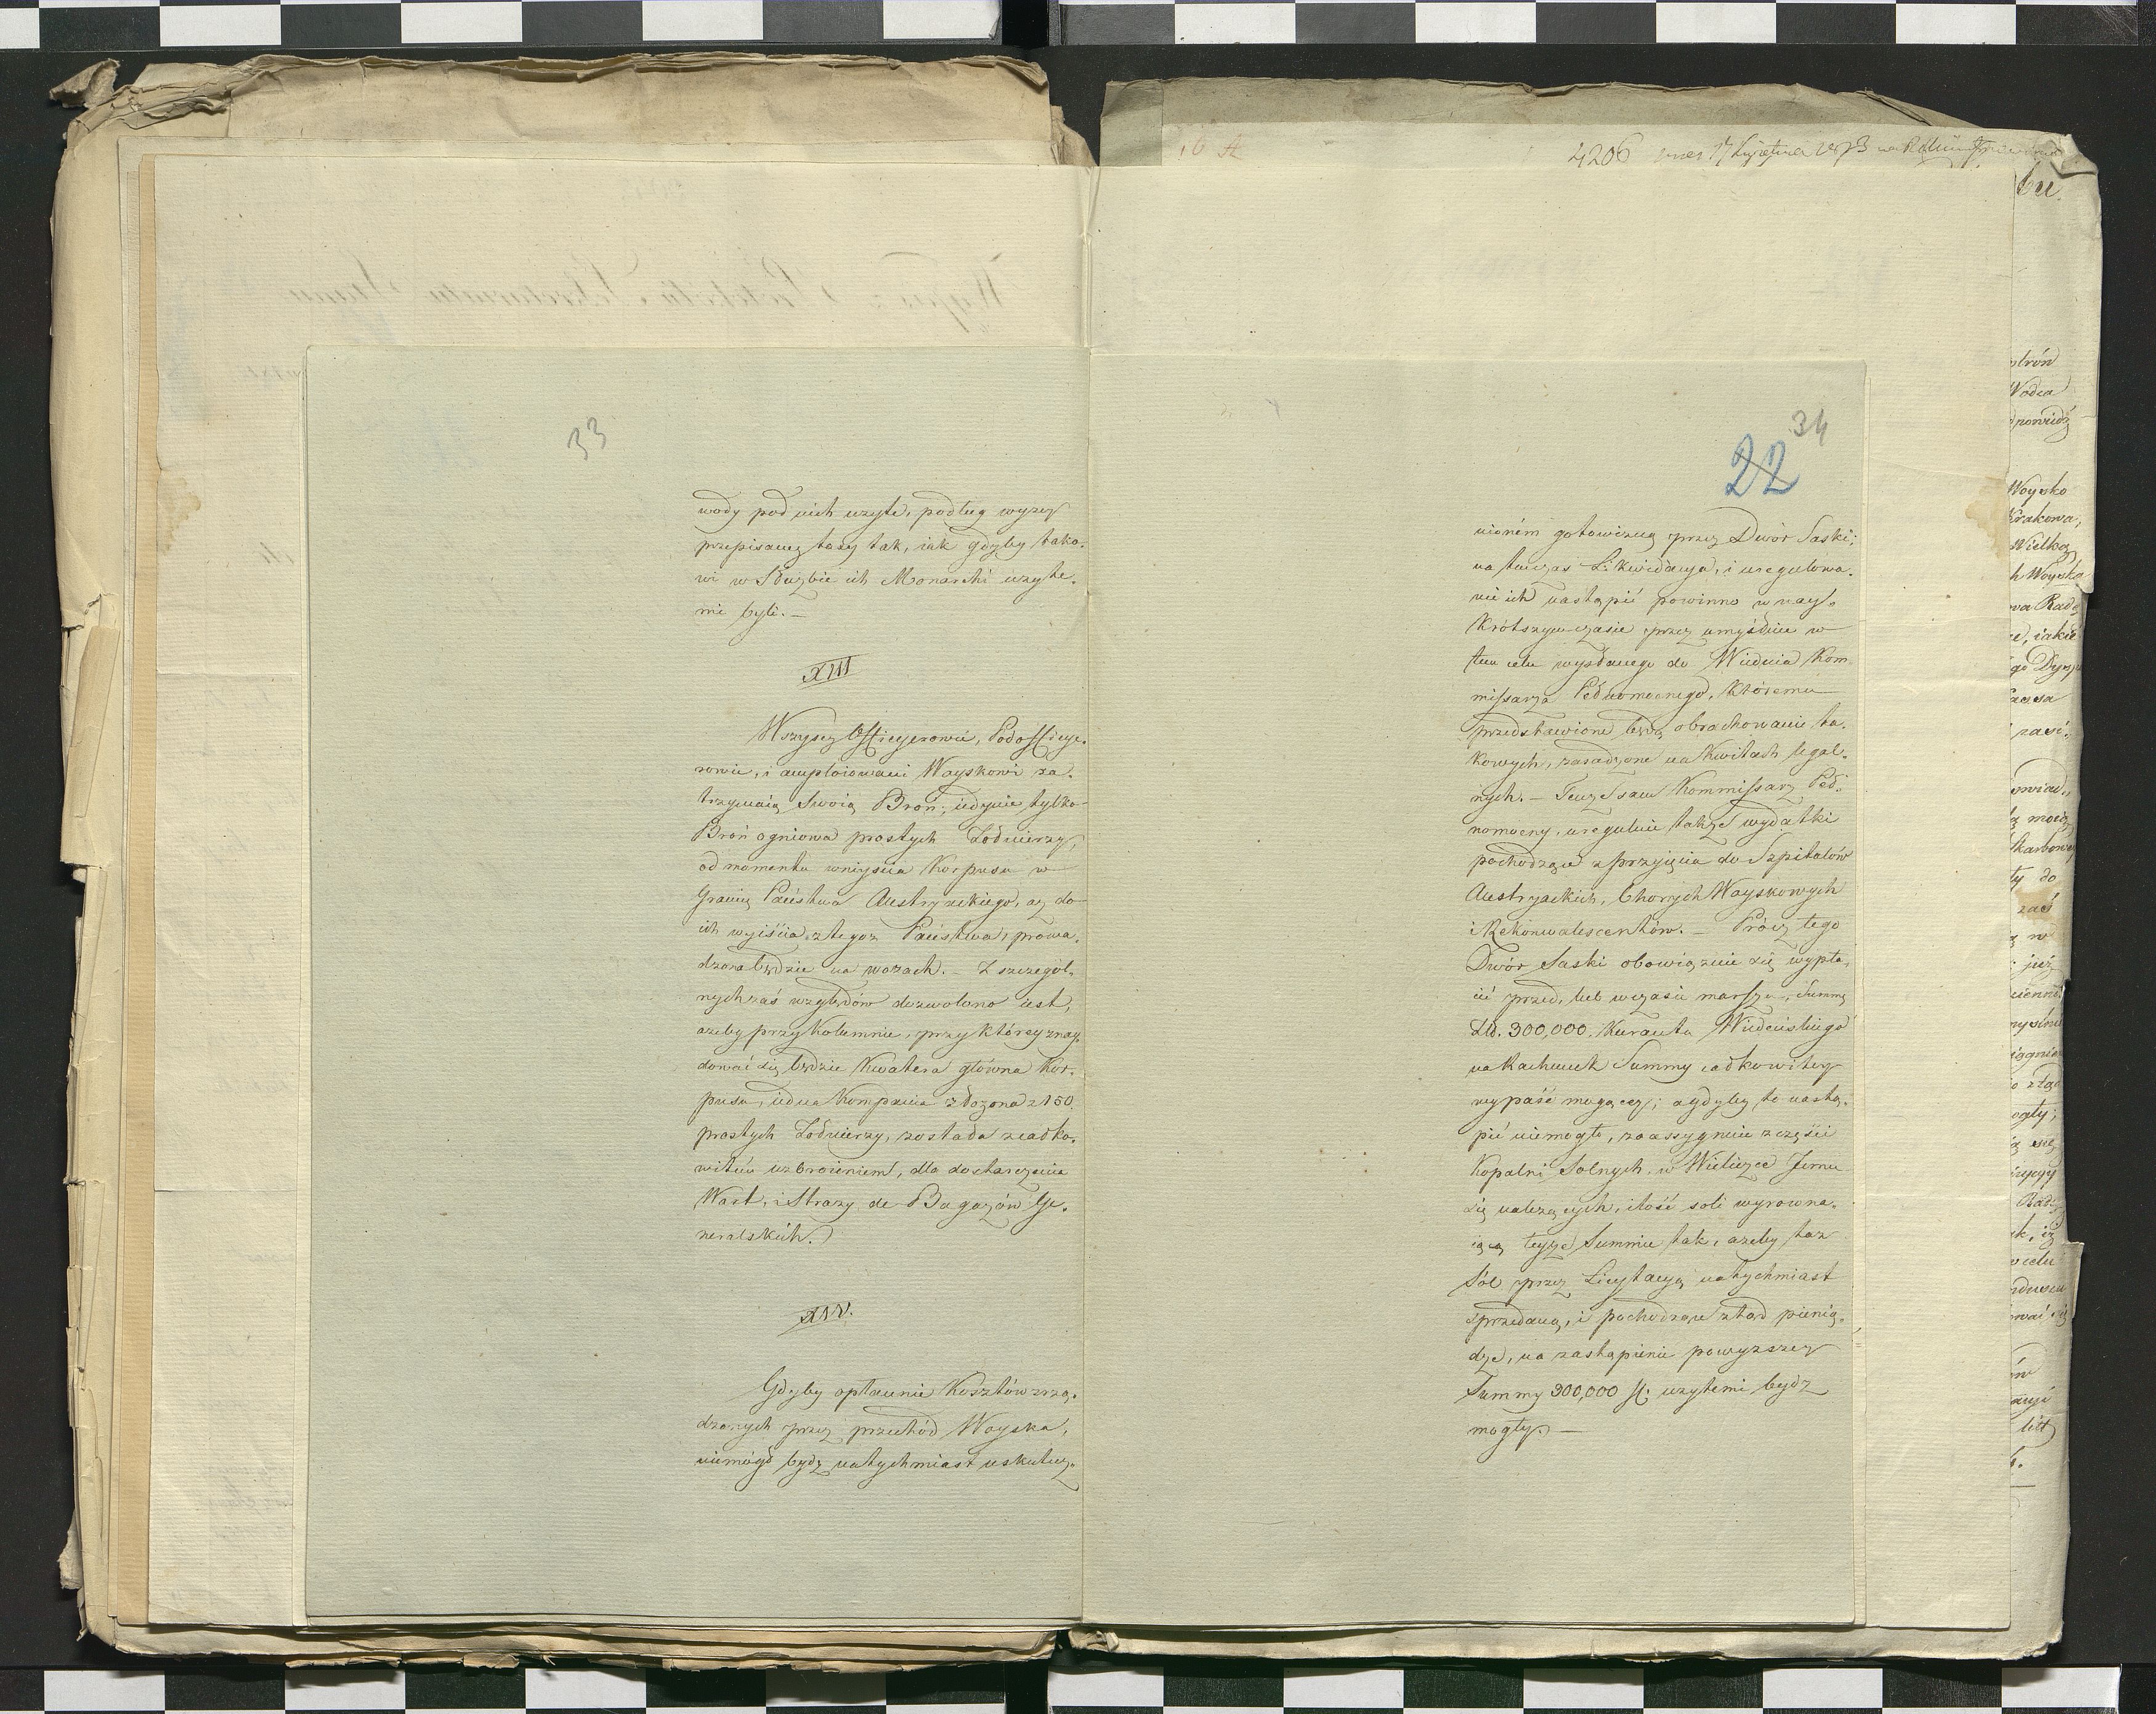 33
wody pod nich użyte, podług wyżey
przepisaney taxy tak, iak gdyby tako-
wi w Służbie ich Monarchi użyte-
mi byli. —
XIII
Wszyscy Officyerowie, Podofficye-
rowie, i amploiowani Woyskowi za-
trzymaią Swoią Broń; iedynie tylko
Broń ogniowa prostych Żołnierzy,
od momentu wniyścia Korpusu w
Granicę Państwa Austryackiego, aż do
ich wyiścia z tegoż Państwa, prowa-
dzona będzie na wozach. — Z szczegól-
nych zaś względów dozwolono iest,
ażeby przy Kolumnie, przy którey znay-
dować się będzie Kwatera główna Kor-
pusu, iedna Kompania złożona z 150.
prostych Żołnierzy, została z całko-
witém uzbroieniem, dla dostarczenia
Wart, i Straży do Bagażów Ge-
neralskich.
XIV.
Gdyby opłacenie Kosztów zrzą-
dzonych przez przechód Woyska,
niemógł bydz natychmiast uskutecz-
16 A
4206
34
22
nioném gotowizną przez Dwór Saski;
na tenczas Likwidacya, i uregulowa-
nie ich nastąpić powinno w nay-
krótszym czasie przez umyślnie w
tem celu wysłanego do Wiednia Kom-
missarza Pełnomocnego, któremu
przedstawione będą obrachowanie ta-
kowych, zasadzone na Kwitach legal-
nych. — Tenże sam Kommissarz Peł-
nomocny, ureguluie także wydatki
pochodzące z przyięcia do Szpitalów
Austryackich, Chorych Woyskowych
i Rekonwalescentów. — Prócz tego
Dwór Saski obowiązuie się wypła-
cić przed, lub w czasie marszu, Summę
Zł. 300,000. Kuranta Wiedeńskiego
na Rachunek Summy całkowitey
wypaść mogącey; a gdyby to nastą-
pić niemogło, zaassygnuie z części
Kopalni Solnych w Wieliczce Jemu
się należących, ilość soli wyrowna-
iącą teyże Summie tak, ażeby taż
Sól przez Licytacyą natychmiast
sprzedaną, i pochodzące ztąd pienią-
dze, na zastąpienie powyższey
Summy 300,000 fl; użytemi bydz
mogły. —
bu.
Wodza
Woysko
Krakowa,
Wielką
h Woyska
wa Radę
iakie